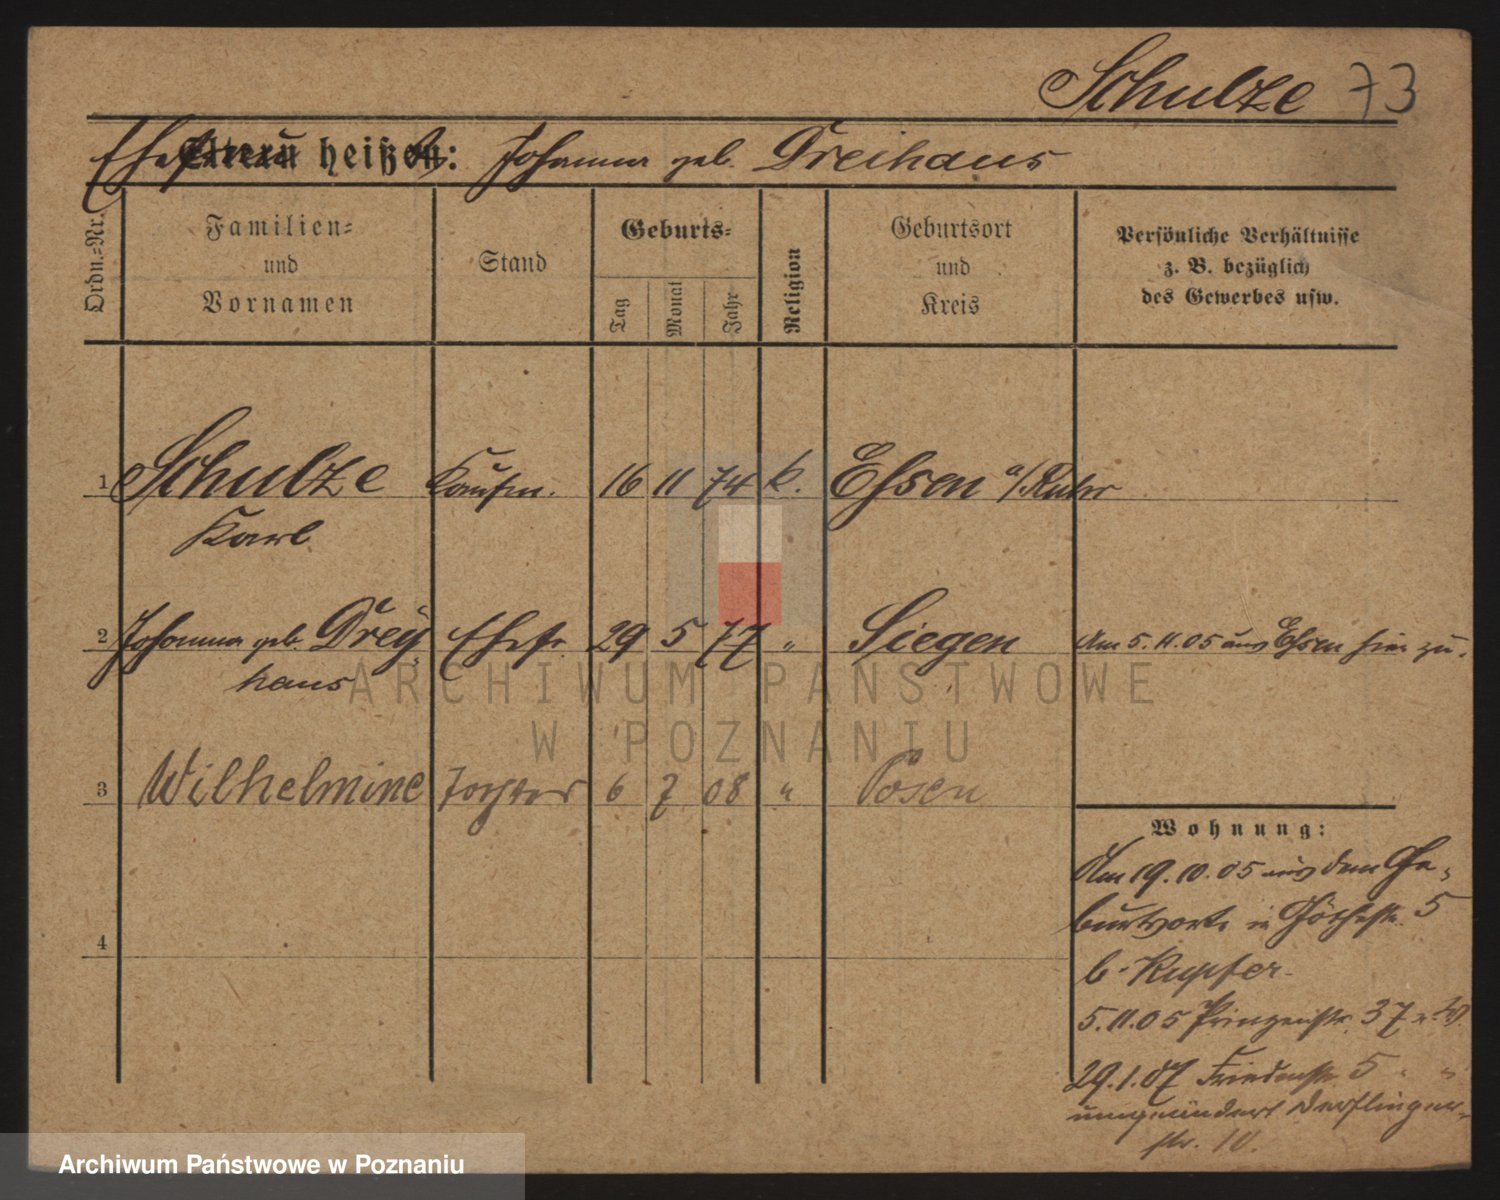 Schulze 73
Ehefrau heißt: Johanna geb. Dreihaus
Ordn.-Nr.
Familien-
und
Vornamen
Stand
Geburts-
Tag
Monat
Jahr
Religion
Geburtsort
und
Kreis
Persönliche Verhältnisse
z. B. bezüglich
des Gewerbes usw.
1 Schulze Kaufm. 16 11 74 k. Essen a/Ruhr
Karl
2 Johanna geb. Drey- Ehefr. 29 5 77 " Siegen Am 5.11.05 aus Essen hier zu.
haus
3 Wilhelmine Tochter 6 7 08 " Posen
4
Wohnung:
Am 19.10.05 aus dem Ge-
burtsorte in Göthestr. 5
b. Kupfer.
5.11.05 Prinzenstr. 37 e. W.
29.1.07 Friedenstr. 5 " "
umgeändert Derflinger-
str. 10.
ARCHIWUM PAŃSTWOWE
W POZNANIU
Archiwum Państwowe w Poznaniu